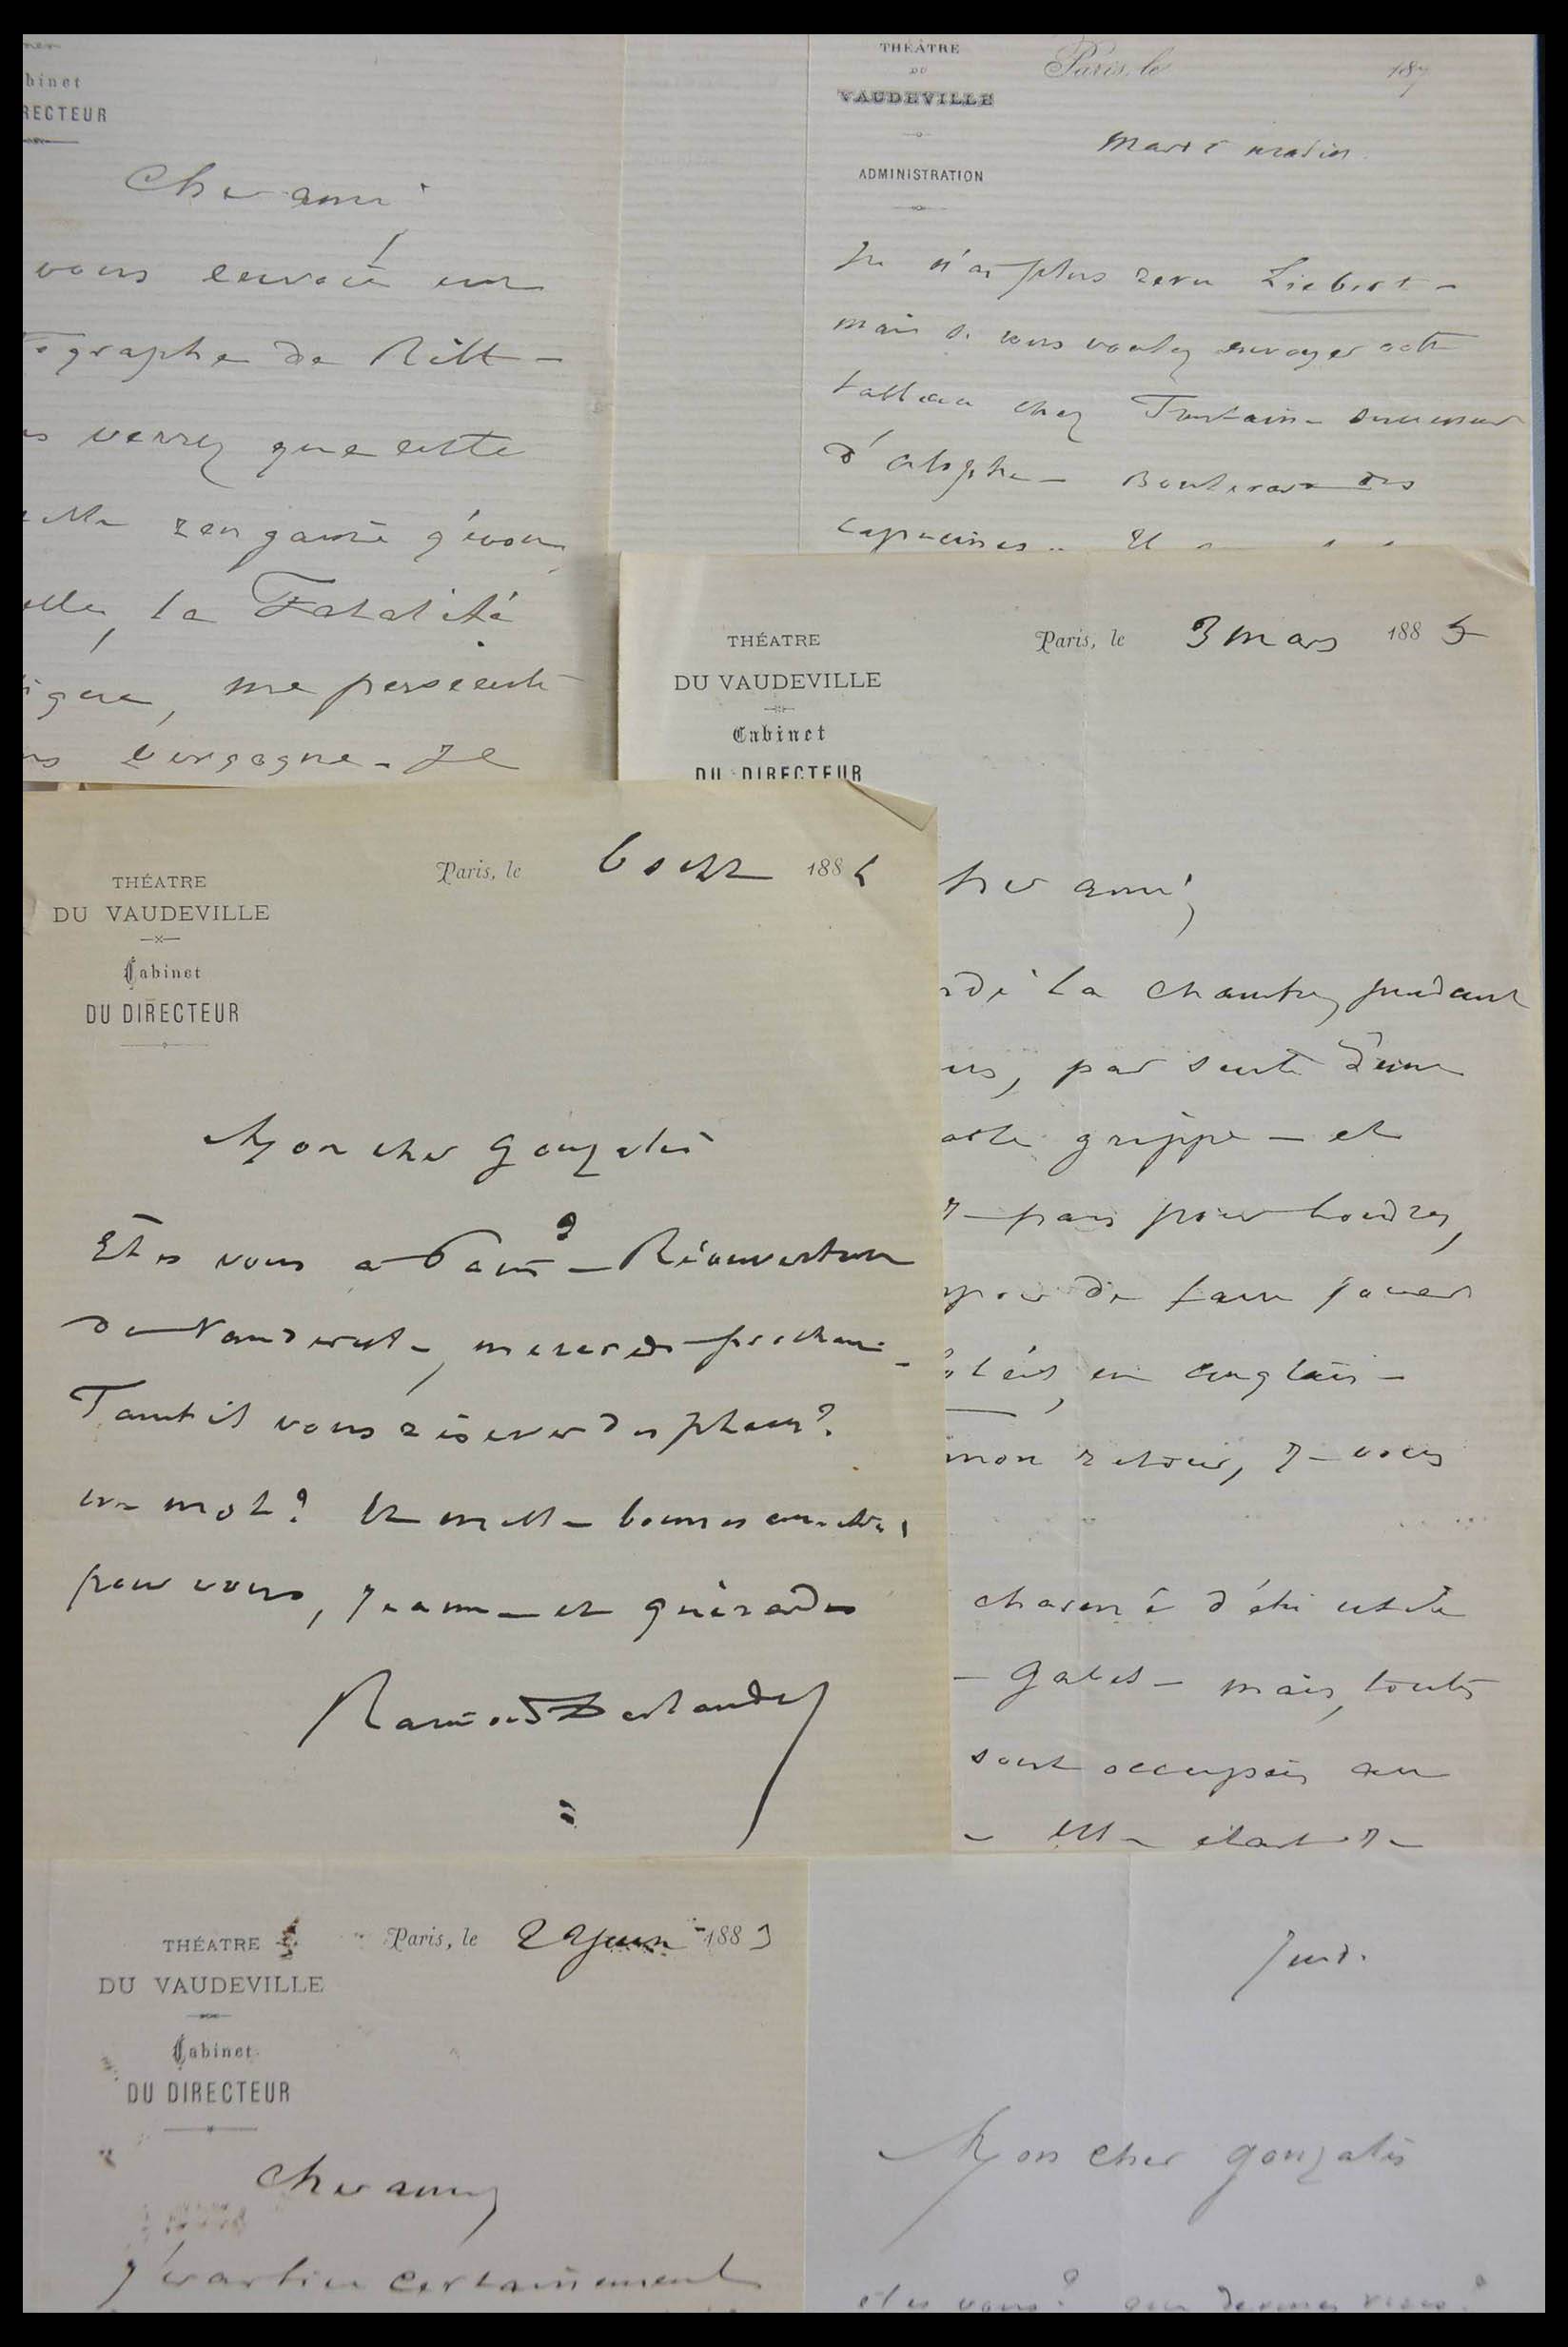 binet
RECTEUR
Cher ami
vous envoie un
tographe de Ritt -
verrez que cette
rengaine q'évo
la Fatalité
me persécute
Je
THÉATRE
DU
VAUDEVILLE
ADMINISTRATION
Paris, le 187
Mardi matin.
Je n'ai plus revu Liebert -
mais si vous voulez envoyer cette
tableau chez Fontaine successeur
d' Boulevard des
capucines
THÉATRE
DU VAUDEVILLE
Cabinet
DU DIRECTEUR
Paris, le 3 mars 1885
her ami,
rdé la chambre, pendant
par suite d'une
grippe - et
pars pour Londres,
de faire jouer
en anglais -
mon retour, je vous
charmé d'être utile
mais, toutes
sont occupées au
était
THÉATRE
DU VAUDEVILLE
Cabinet
DU DIRECTEUR
Paris, le 6 188
Mon cher Gonzalès
Etes vous à Paris? - Réouverture
du Vaudeville, mercredi prochain -
Faut il vous réserver des places?
un mot? Et mille bonnes amitiés
pour vous, Jeanne et
Raimond Deslandes
THÉATRE
DU VAUDEVILLE
Cabinet
DU DIRECTEUR
Paris, le 22 juin 1883
Cher ami,
certainement
Jeudi.
Mon cher Gonzalès
etes vous? que devenez vous?